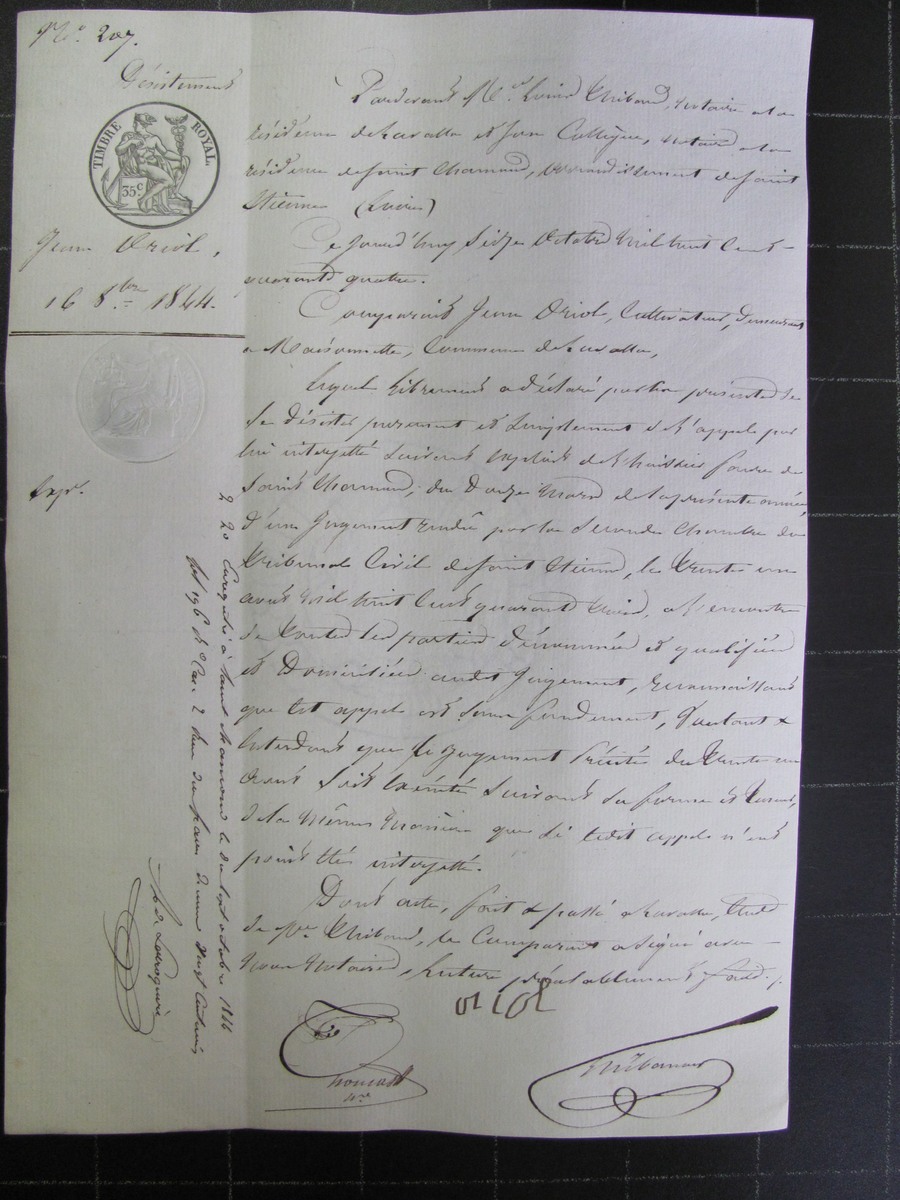 N.° 207.
Désistement
TIMBRE ROYAL
35c
Jean Oriol,
16 8.bre 1844.
Expé.
Pardevant Me. Louis Thibaud, notaire à la
résidence de Lavalla et son Collègue, notaire à la
résidence de Saint Chamond, arrondissement de Saint
Etienne (Loire)
Ce jourd'huy Seize Octobre mil huit Cent
quarante quatre.
Comparait Jean Oriol, Cultivateur, demeurant
à Maisonnette, Commune de Lavalla,
Lequel librement a déclaré par les présentes
Se désister purement et Simplement de l'appel par
lui interjetté Suivant exploit de l'huissier de
Saint Chamond, du Douze mars de la présente année
d'un Jugement rendu par la Seconde Chambre du
Tribunal Civil de Saint Etienne, le Trente un
août mil huit Cent quarante trois, à l'encontre
de toutes les parties dénommées et qualifiées
et Domiciliées audit Jugement, reconnaissant
que cet appel est Sans fondement, Voulant &
Entendant que le Jugement Précité du Trente un
août Soit Exécuté Suivant Sa forme et teneur,
de la même manière que Si ledit appel n'eut
point été interjetté.
Dont acte, fait & passé à Lavalla, Etude
de Me. Thibaud, le Comparant a Signé avec
Nous Notaires, lecture préalablement faite.
Oriol
Thibaud
Nre
2 20 Enregistré à Saint Chamond le dix sept octobre 1844
fol. 196 Ro Cas. 2 Reçu deux francs vingt Centimes